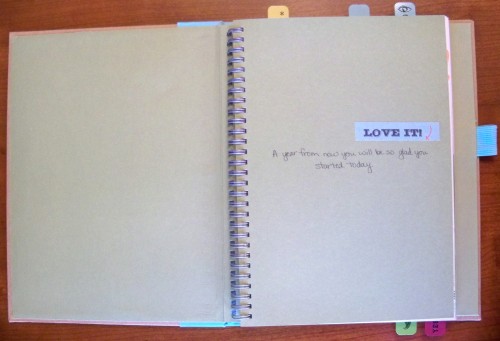 LOVE IT!
A year from now you will be so glad you
started today.